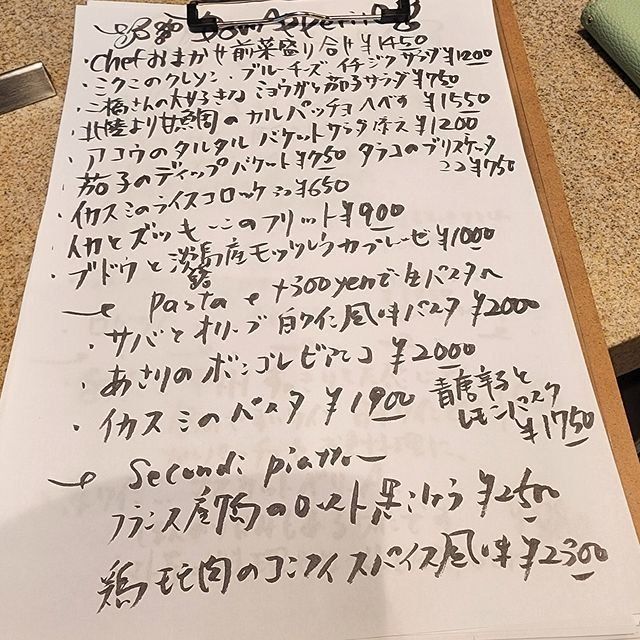 Bon Appetit
・Chefおまかせ前菜盛り合せ ¥1450
・ミクニのクレソン・ブルーチーズ イチジクサラダ ¥1200
・三橋さんの大好きな ミョウガと茄子サラダ ¥750
・北陸より甘鯛のカルパッチョ ¥1550
・アコウのタルタル バケットサラダ添え ¥1200
茄子のディップバケット ¥750 タラコのブリスケッタ
¥750
・イカスミのライスコロッケ ¥650
イカとズッキーニのフリット ¥900
・ブドウと淡路産モッツレラカプレーゼ ¥1000
Pasta +300yenで生パスタへ
・サバとオリーブ 白ワイン風味パスタ ¥2000
・あさりのボンゴレビアンコ ¥2000
・イカスミのパスタ ¥1900
青唐辛子と
レモンパスタ
¥1750
Secondi piatto
フランス産鴨のロースト 黒こしょう ¥2500
鶏モモ肉のコンフィスパイス風味 ¥2300